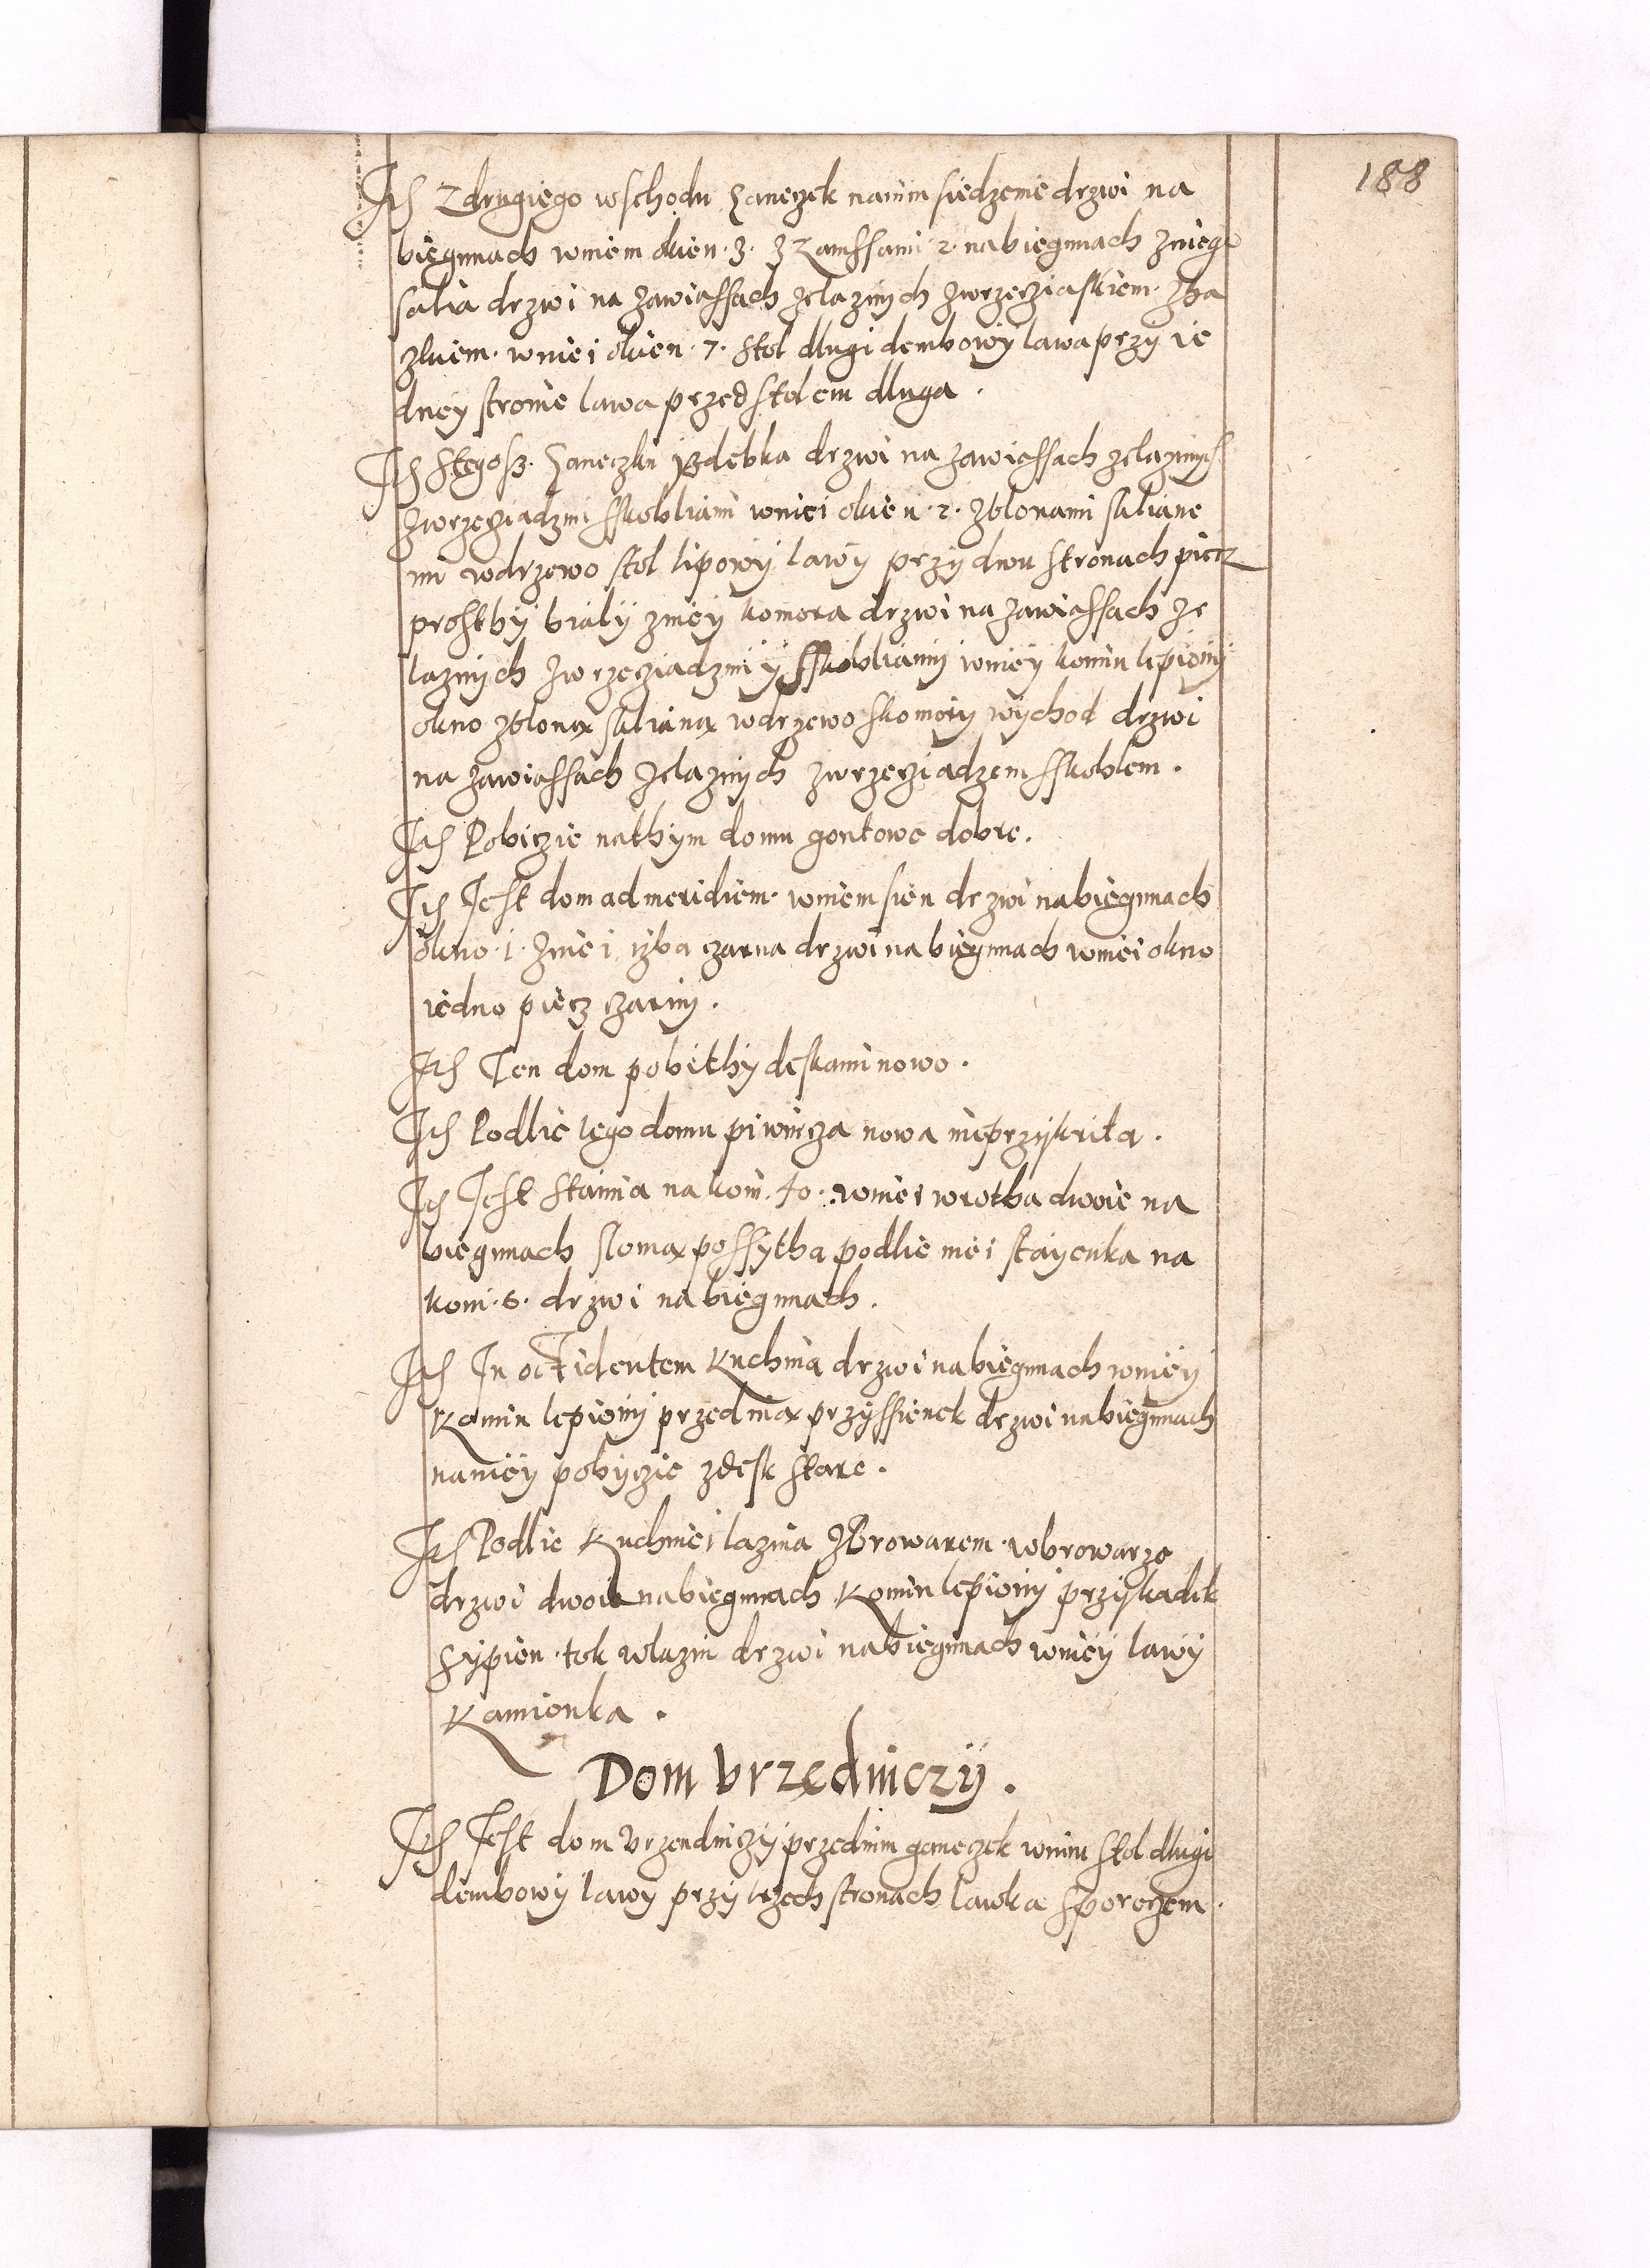 188
Ith Z drugiego wschodu Ganeczek nanim siedzenie drzwi na
biegunach wniem okien · 3 · Z zamssami 2 · nabiegunach zniego
salia drzwi na zawiassach zelaznych zwrzeczias kiem · zha
zlwem · wniei okien · 7 · stol dlugi dembowy lawa przy ie
dney stronie lawa przed stolem dluga ·
Ith Stegosz Ganeczku Izdebka drzwi na zawiassach zelaznych
zwrzecziadzmi sskobliami wniei okien · 2 · zblonami skliane
mi wdrzewo stol lipowy lawy przy dwu stronach piecz
prosthy bialy zniey komora drzwi na zawiassach ze
laznych zwrzecziadzmi y sskobliami wniey komin lepiony
okno zblona skliana wdrzewo skomory wychod drzwi
na zawiassach zelaznych zwrzecziadzem sskoblem ·
Ith Pobiczie nathym domu gontowe dobre ·
Ith Jest dom ad meridiem · wniem sien drzwi nabiegunach
okno · 1 · zniei izba czarna drzwi na biegunach wniei okno
iedno piecz czarny ·
Ith Ten dom pobithy deskami nowo ·
Ith Podlie tego domu piwnicza nowa nieprzykrita ·
Ith Jest stainia na koni · 40 · wniei wrotha dwoie na
biegunach sloma possytha podlie niei stayenka na
koni · 6 · drzwi na biegunach ·
Ith In occidentem Kuchnia drzwi nabiegunach wniey
Komin lepiony przed nia przyssienek drzwi nabiegunach
naniey pobyczie zdesk stare ·
Ith Podlie Kuchniei laznia zBrowarem · wbrowarze
drzwi dwoie nabiegunach Komin lepiony przyskadek
sypien · tok wlazni drzwi nabiegunach wniey lawy
Kamionka ·
Dom Vrzędniczy ·
Ith Jest dom Vrzendniczy przednim ganeczek wnim stol dlugi
dembowy lawy przy trzech stronach lawka sporeczem ·